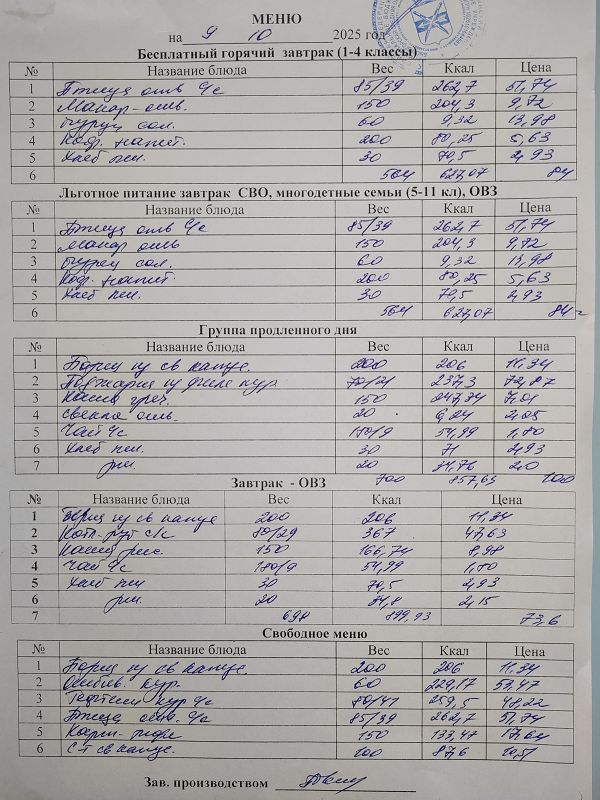 МЕНЮ
на 9 10 2025 год
Бесплатный горячий завтрак (1-4 классы)
№ Название блюда Вес Ккал Цена
1 Птица отв ч/с 85/39 262,7 51,74
2 Макар-отв. 150 204,3 9,72
3 Огурец сол. 60 9,32 13,98
4 Коф. напит. 200 80,25 5,63
5 Хлеб пш. 30 70,5 2,93
6 564 627,07 84
Льготное питание завтрак СВО, многодетные семьи (5-11 кл), ОВЗ
№ Название блюда Вес Ккал Цена
1 Птица отв ч/с 85/39 262,7 51,74
2 Макар отв 150 204,3 9,72
3 Огурец сол. 60 9,32 13,98
4 Коф. напит. 200 80,25 5,63
5 Хлеб пш. 30 70,5 2,93
6 564 627,07 84
Группа продленного дня
№ Название блюда Вес Ккал Цена
1 Борщ из св капус. 200 206 11,34
2 Поджарка из филе кур 70/21 237,3 72,87
3 Каша греч. 150 247,74 7,01
4 свекла отв. 20 6,24 2,05
5 Чай ч/с 180/9 54,99 1,80
6 Хлеб пш. 30 71 2,93
7 рж. 20 34,76 2,0
700 857,63 100
Завтрак - ОВЗ
№ Название блюда Вес Ккал Цена
1 Борщ из св капус 200 206 11,34
2 Котл. с/с 80/29 367 47,63
3 Каша рис. 150 166,74 8,98
4 Чай ч/с 180/9 54,99 1,80
5 Хлеб пш 30 70,5 2,93
6 рж. 20 34,8 2,15
7 698 899,93 73,6
Свободное меню
№ Название блюда Вес Ккал Цена
1 Борщ из св капус. 200 206 11,34
2 кур. 60 229,17 53,47
3 Тефтели кур ч/с 80/41 259,5 48,22
4 Птица отв. ч/с 85/39 262,7 51,74
5 Карт. пюре 150 133,47 17,64
6 С-т св капус. 100 87,6 10,51
Зав. производством